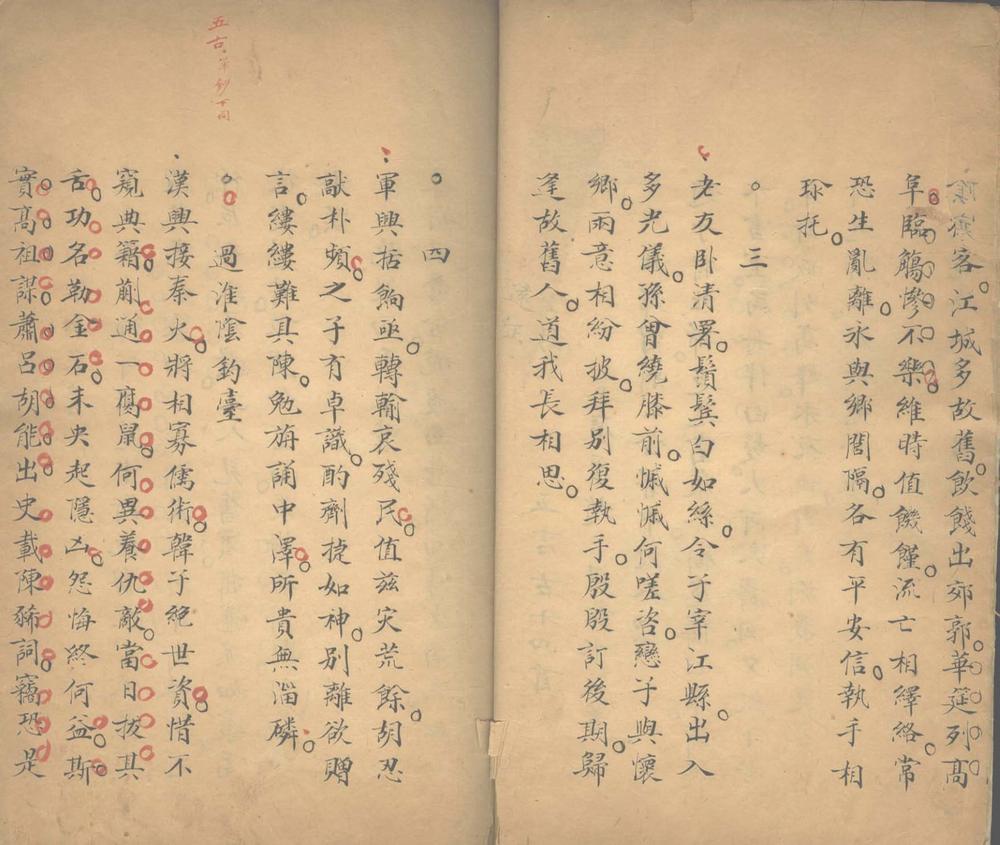 客江城多故舊飲餞出郊郭華筵列高
阜臨觴慘不樂維時值饑饉流亡相繹絡常
恐生亂離水與鄉閭隔各有平安信執手相
珎托
三
老友卧清署鬚鬂白如絲令子宰江縣出入
多光儀孫曾繞膝前慽慽何嗟咨戀子與懷
鄉兩意相紛披拜别復執手殷殷訂後期歸
逢故舊人道我長相思
四
軍興括餉亟轉輸哀殘民值兹灾荒餘胡忍
敲朴頻之子有卓識酌劑捷如神别離欲贈
言縷縷難具陳勉旃誦中澤所貴無淄磷
五古 單鈔下同
過淮陰釣臺
漢興接秦火將相寡儒術韓子絶世資惜不
窺典籍蒯通一腐鼠何異養仇敵當日拔其
舌功名勒金石未央起隱凶怨悔終何益斯
實高祖謀蕭吕胡能出史載陳豨詞竊恐是